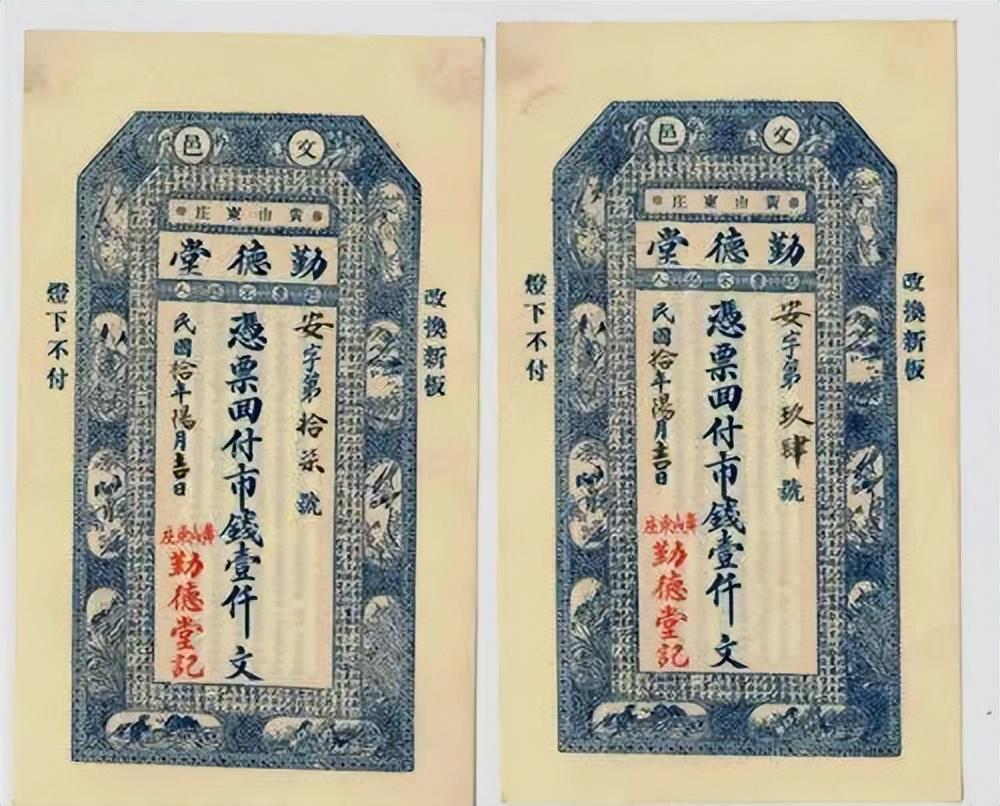 文邑
黄山東庄
勤德堂
安字第拾柒號
憑票囬付市錢壹仟文
民國拾年陽月吉日
黄山東庄
勤德堂記
改換新板
燈下不付
文邑
黄山東庄
勤德堂
安字第玖肆號
憑票囬付市錢壹仟文
民國拾年陽月吉日
黄山東庄
勤德堂記
改換新板
燈下不付